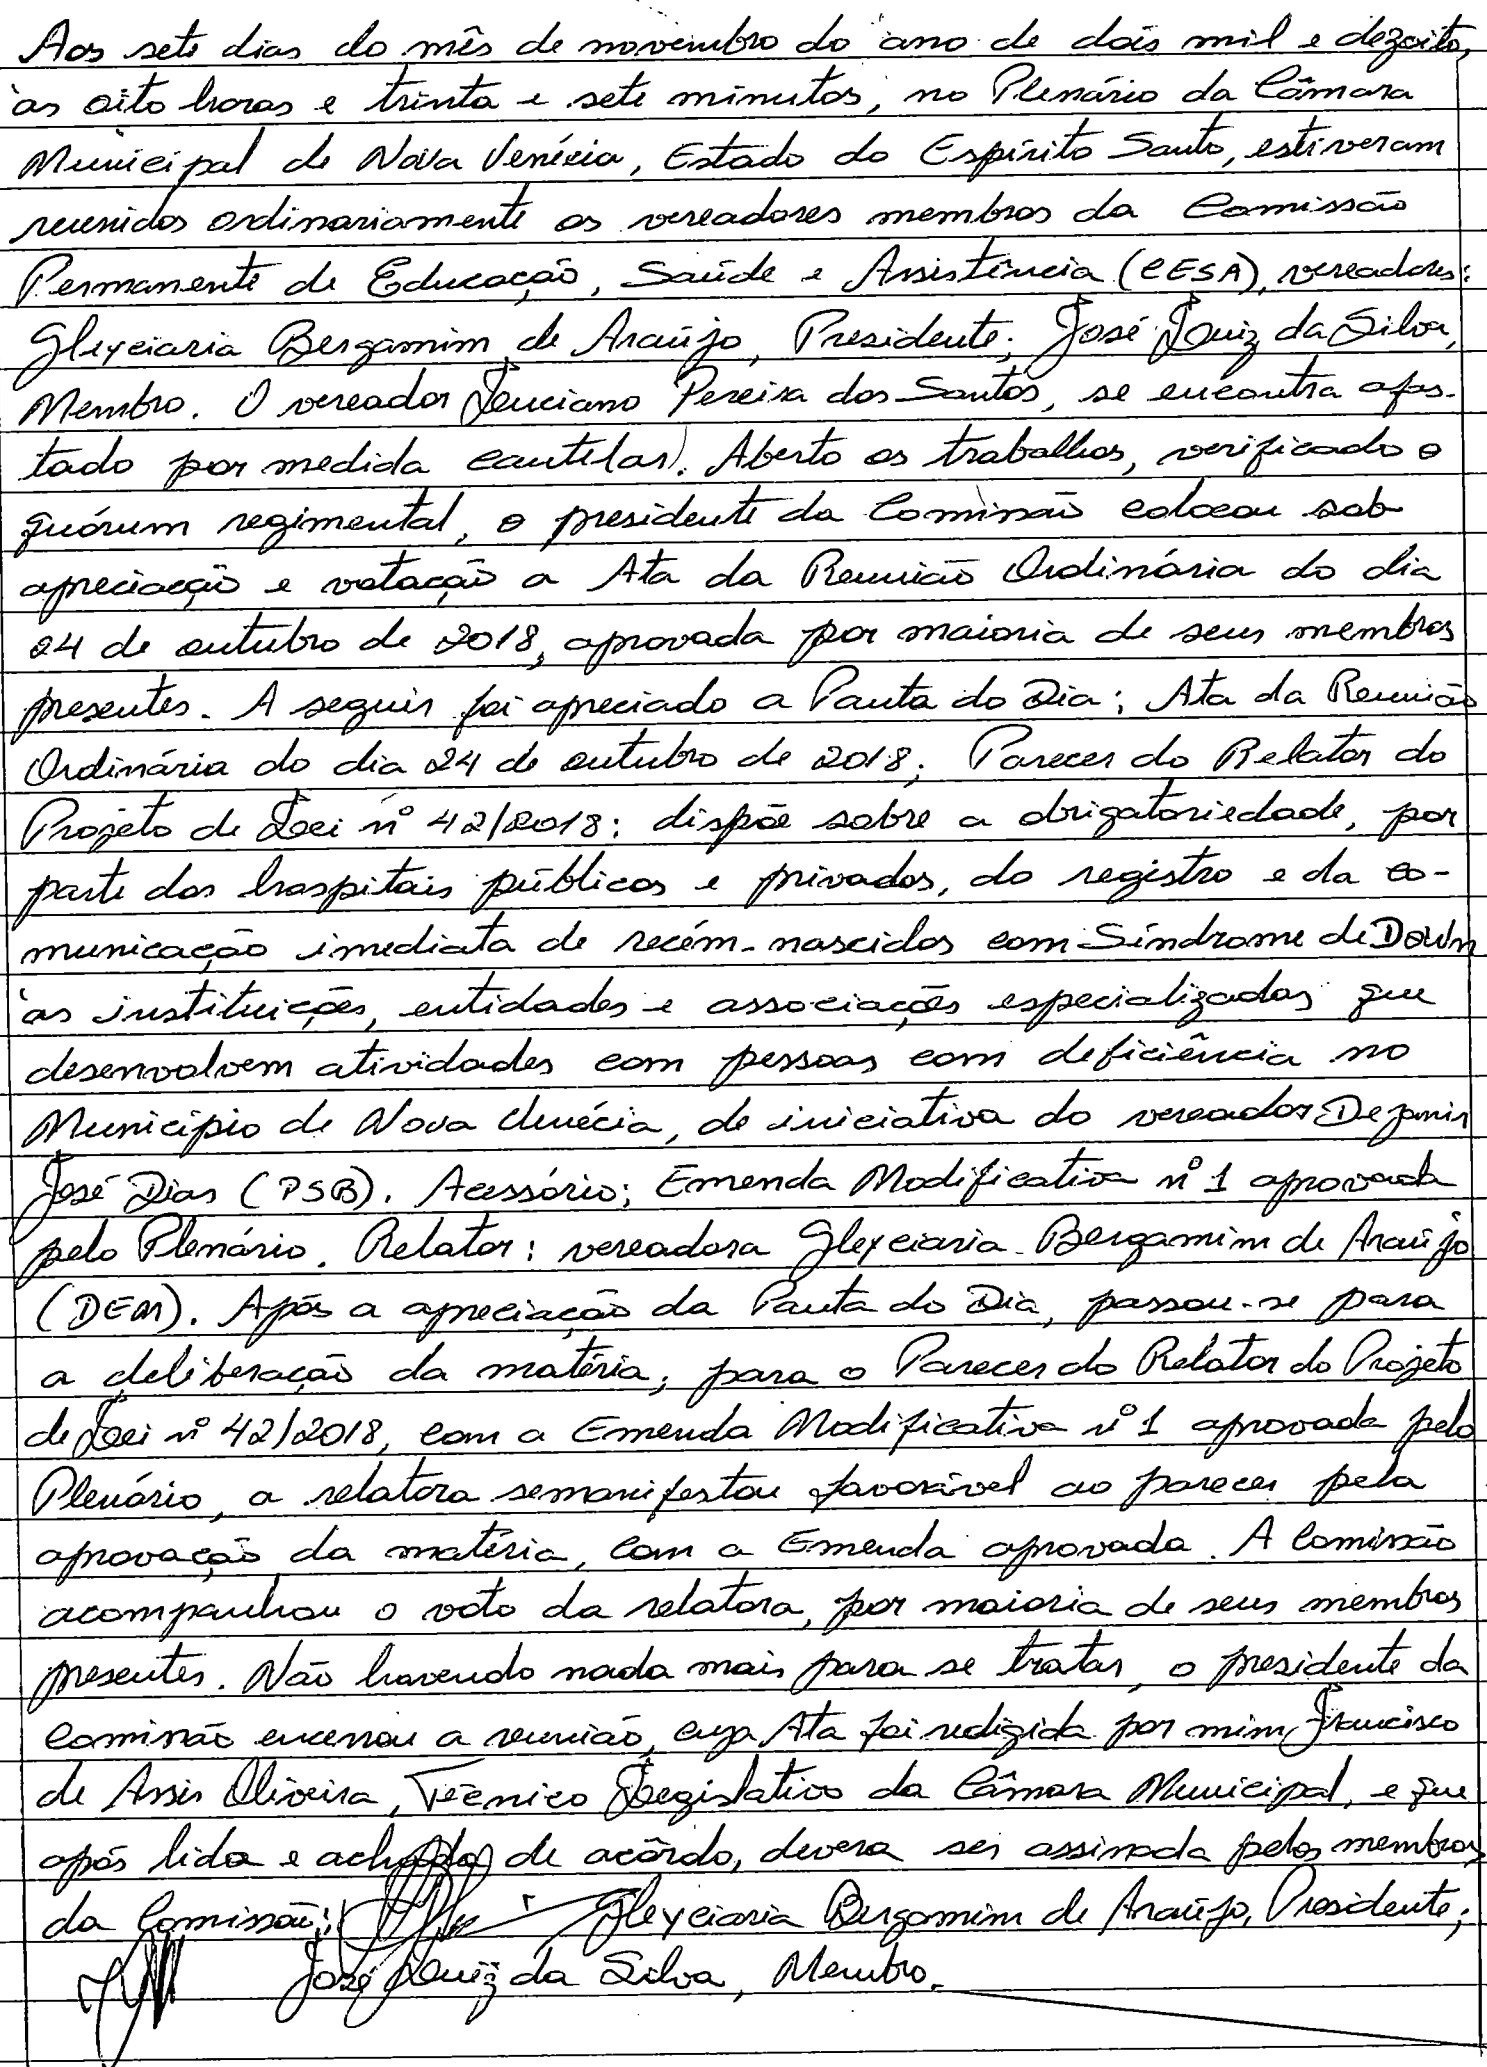 Aos sete dias do mês de novembro do ano de dois mil e dezoito,
às oito horas e trinta e sete minutos, no Plenário da Câmara
Municipal de Nova Venécia, Estado do Espírito Santo, estiveram
reunidos ordinariamente os vereadores membros da Comissão
Permanente de Educação, Saúde e Assistência (CESA), vereadores:
Gleyciaria Bergamim de Araújo, Presidente; José Luiz da Silva,
Membro. O vereador Luciano Pereira dos Santos, se encontra afas-
tado por medida cautelar). Aberto os trabalhos, verificado o
quórum regimental, o presidente da Comissão colocou sob
apreciação e votação a Ata da Reunião Ordinária do dia
24 de outubro de 2018, aprovada por maioria de seus membros
presentes. A seguir foi apreciado a Pauta do Dia: Ata da Reunião
Ordinária do dia 24 de outubro de 2018; Parecer do Relator do
Projeto de Lei nº 42/2018: dispõe sobre a obrigatoriedade, por
parte dos hospitais públicos e privados, do registro e da co-
municação imediata de recém-nascidos com Síndrome de Down
às instituições, entidades e associações especializadas que
desenvolvem atividades com pessoas com deficiência no
Município de Nova Venécia, de iniciativa do vereador Dejanir
José Dias (PSB). Acessório: Emenda Modificativa nº 1 aprovada
pelo Plenário. Relator: vereadora Gleyciaria Bergamim de Araújo
(DEM). Após a apreciação da Pauta do Dia, passou-se para
a deliberação da matéria; para o Parecer do Relator do Projeto
de Lei nº 42/2018, com a Emenda Modificativa nº 1 aprovada pelo
Plenário, a relatora se manifestou favorável ao parecer pela
aprovação da matéria, com a Emenda aprovada. A Comissão
acompanhou o voto da relatora, por maioria de seus membros
presentes. Não havendo nada mais para se tratar, o presidente da
Comissão encerrou a reunião, cuja Ata foi redigida por mim, Francisco
de Assis Oliveira, Técnico Legislativo da Câmara Municipal, e que
após lida e achada de acôrdo, devera ser assinada pelos membros
da Comissão: Gleyciaria Bergamim de Araújo, Presidente;
José Luiz da Silva, Membro.